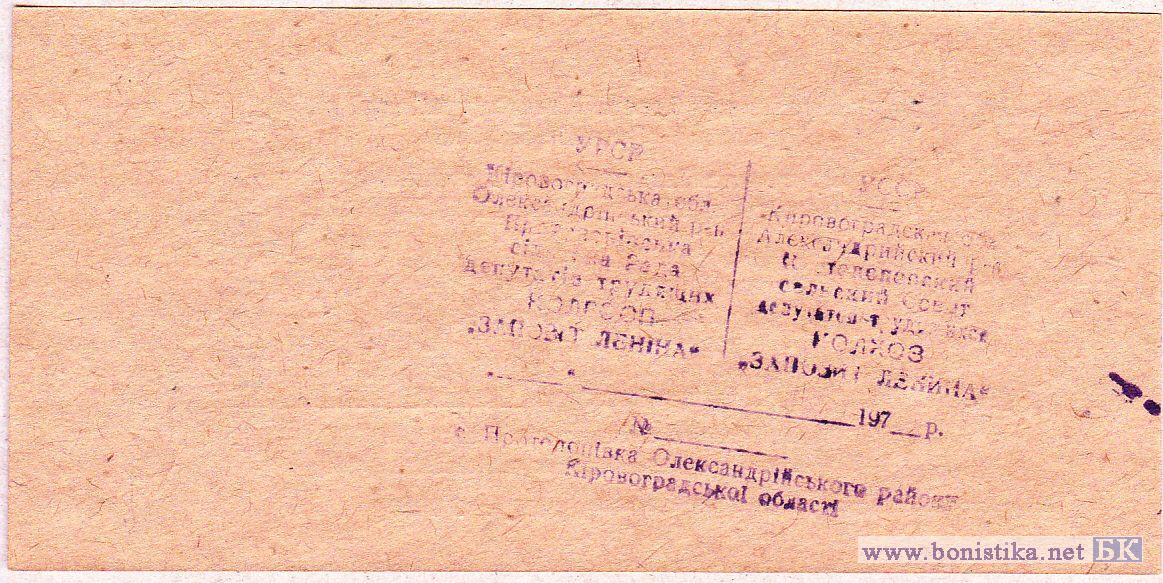 УРСР
Кіровоградська обл.
Олександрійський р-н
сільська Рада
депутатів трудящих
КОЛГОСП
„ЗАПОВІТ ЛЕНІНА“
УССР
Кировоградская обл.
Александрийский р-н
сельский Совет
депутатов трудящихся
КОЛХОЗ
„ЗАПОВИТ ЛЕНИНА“
„____“ ____________ 197__ р.
№ ________
с. Протопопівка Олександрійського району
Кіровоградської області
www.bonistika.net БК